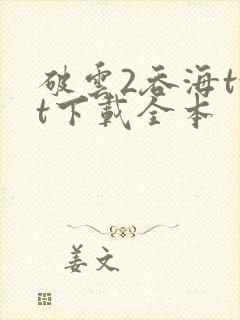 破雲2吞海tx
t下載全本
姜文